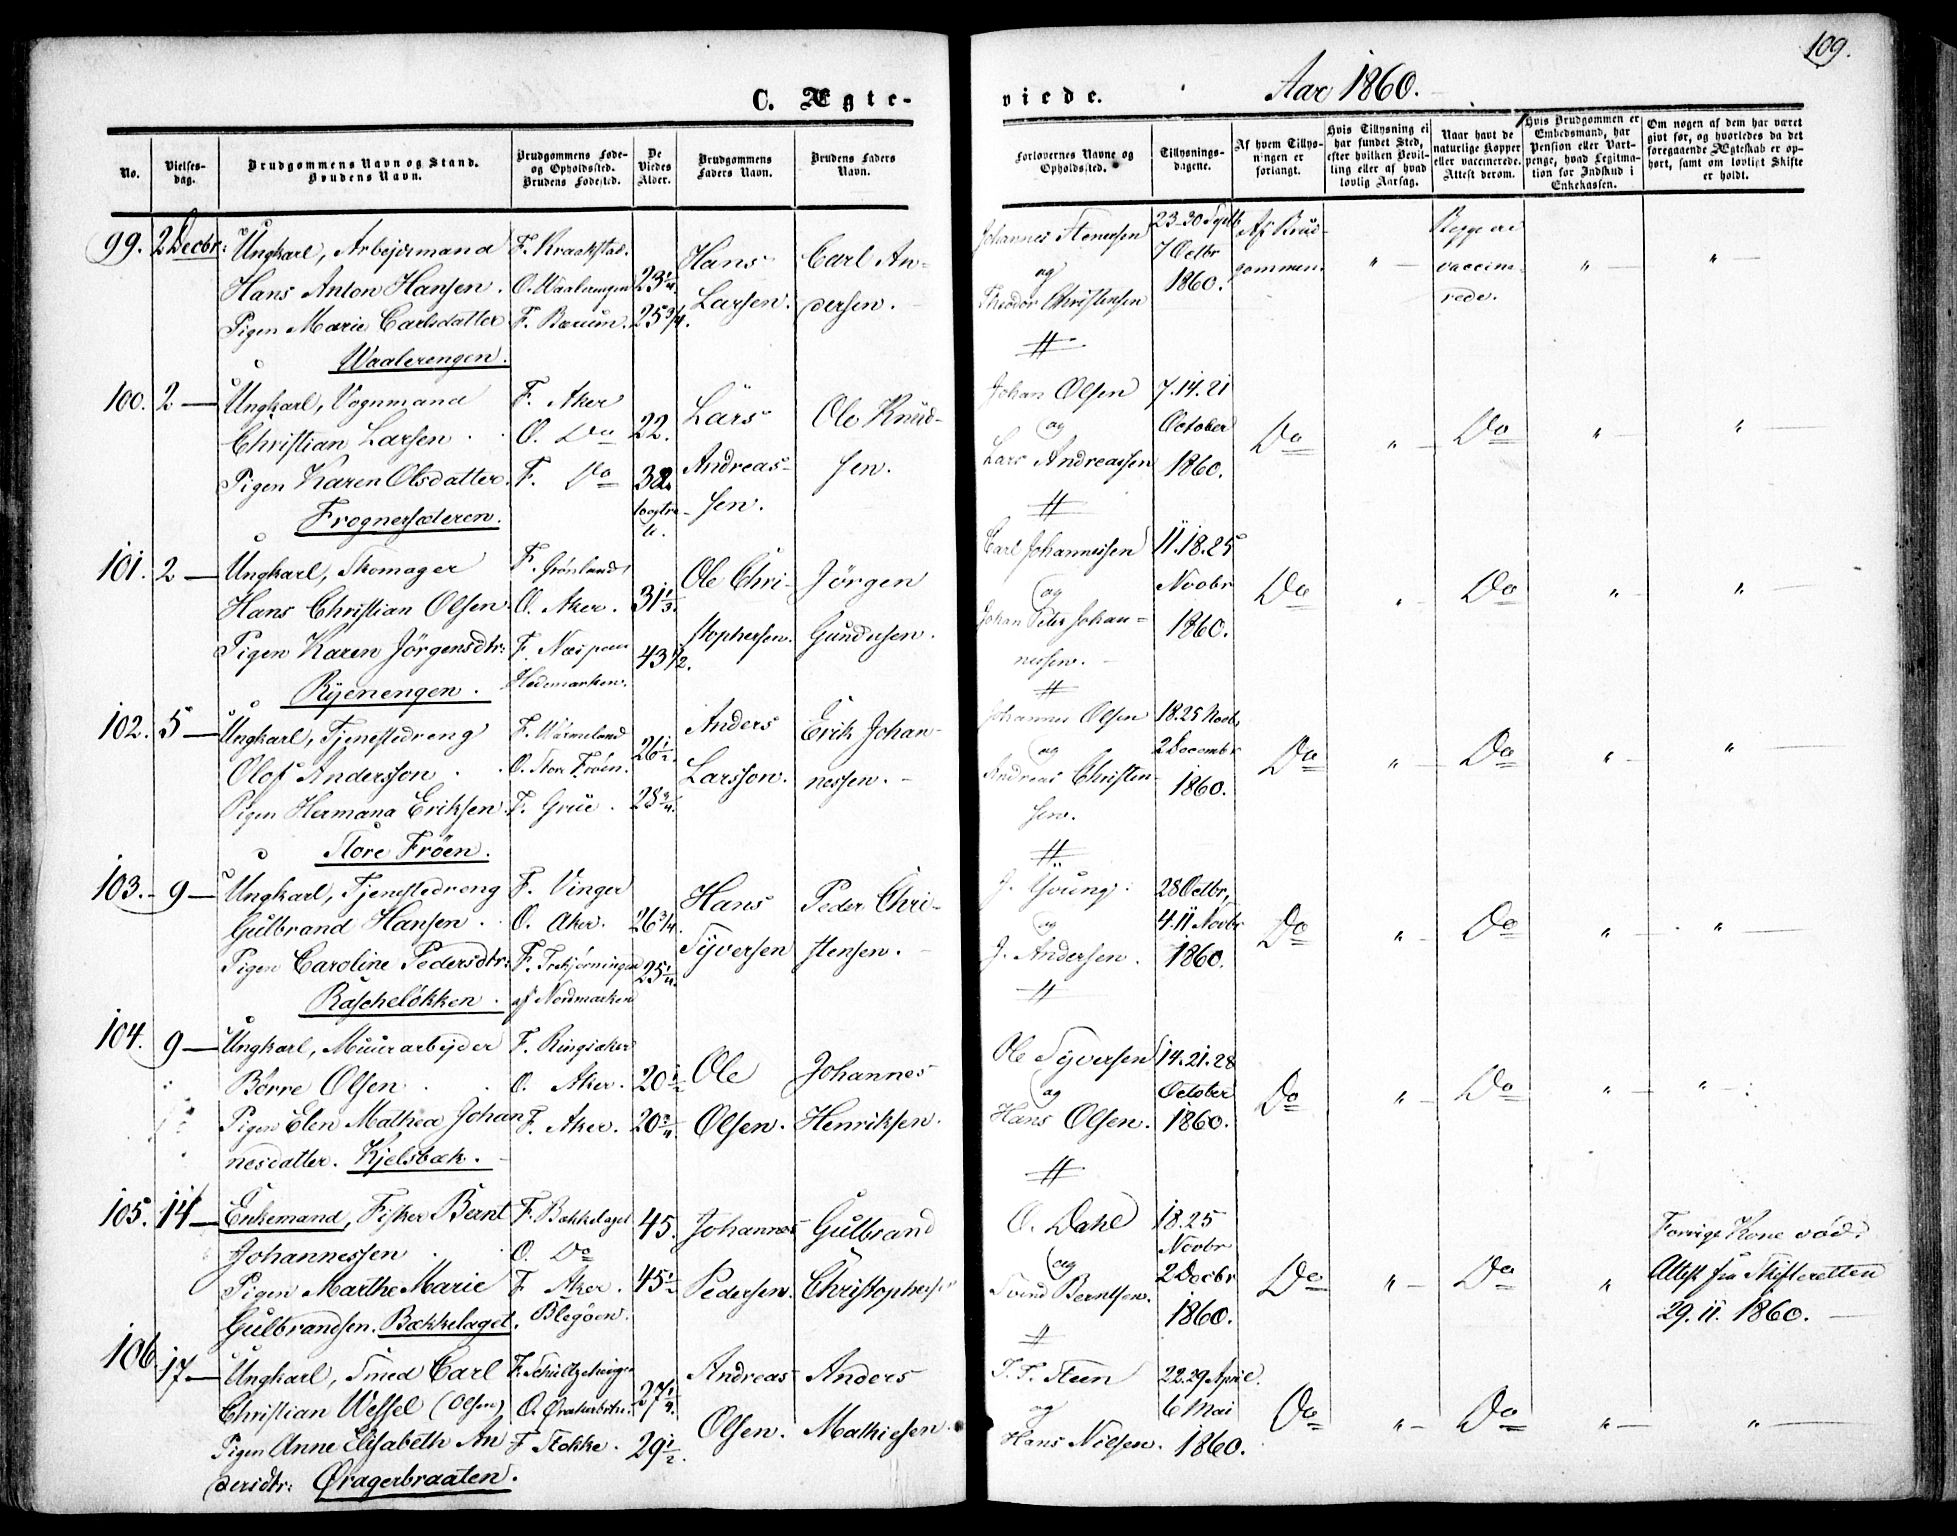 109.
C. Ægte-
viede.
Aar 1860.
No.
Vielses-
dag.
Brudgommens Navn og Stand.
Brudens Navn.
Brudgommens Føde-
og Opholdssted.
Brudens Fødested.
De
Viedes
Alder.
Brudgommens
Faders Navn.
Brudens Faders
Navn.
Forlovernes Navne og
Opholdssted.
Tillysnings-
dagene.
Af hvem Tillys-
ningen er
forlangt.
Hvis Tillysning ei
har fundet Sted,
efter hvilken Bevil-
ling eller af hvad
lovlig Aarsag.
Naar havt de
naturlige Kopper
eller vaccinerede.
Attest derom.
Hvis Brudgommen er
Embedsmand, har
Pension eller Vart-
penge, hvad Legitima-
tion for Indskud i
Enkekassen.
Om nogen af dem har været
givt før, og hvorledes da det
foregaaende Ægteskab er op-
hørt, samt om lovligt Skifte
er holdt.
99. 2 Decbr:
Ungkarl, Arbejdsmand
Hans Anton Hansen.
Pigen Marie Carlsdatter
Waalerengen.
F. Kraakstad.
O. Waalerengen
F. Bærum.
23 1/4.
25 3/4.
Hans
Larsen.
Carl An-
dersen.
Johannes Stenersen
og
Theodor Christensen
23-30 Septb
7 Octbr
1860.
Af Brud-
gommen.
" —
Begge ere
vaccine-
rede.
" —
" —
100. 2 —
Ungkarl, Vognmand
Christian Larsen
Pigen Karen Olsdatter.
Frognersæteren.
F. Aker
O. Do
F. Do
22.
38.
Lars
Andreas-
sen.
Ole Knud-
sen.
Johan Olsen
og
Lars Andreassen
7. 14. 21
October
1860.
Do
" —
Do
" —
" —
101. 2 —
Ungkarl, Skomager
Hans Christian Olsen
Pigen Karen Jörgensdtr:
Ryenengen.
F. Grönland
O. Aker.
F. Næs paa
Hedemarken.
31 1/3.
43 1/2.
Ole Chri-
stophersen.
Jörgen
Gundersen.
Carl Johannessen
og
Johan Peter Johan=
nessen.
11. 18. 25
Novbr
1860.
Do
" —
Do
" —
" —
102. 5 —
Ungkarl, Tjenestedreng
Olof Andersson
Pigen Hermana Eriksen
Store Fröen.
F. Wärmeland
O. Store Fröen.
F. Grue.
26 1/2.
28 3/4.
Anders
Larsson.
Erik Johan-
nessen.
Johannes Olsen
og
Andreas Christen-
sen.
18. 25 Novb.
2 Decembr
1860.
Do
" —
Do
" —
" —
103. 9 —
Ungkarl, Tjenestedreng
Gulbrand Hansen.
Pigen Caroline Pedersdtr:
Rascheløkken.
F. Vinger
O. Aker.
F. Trehjørningen
af Nordmarken
26 3/4.
25 1/4.
Hans
Syversen
Peder Chri-
stensen.
J. Young.
og
J. Andersen.
28 Octbr,
4. 11 Novbr
1860.
Do
" —
Do
" —
" —
104. 9 —
Ungkarl, Muurarbejder
Börre Olsen
Pigen Elen Mathea Johan
nesdatter. Kjelsbæk.
F. Ringsaker
O. Aker.
F. Aker.
20 1/2
20 3/4.
Ole
Olsen.
Johannes
Henriksen.
Ole Syversen
og
Hans Olsen.
14. 21. 28
October
1860.
Do
" —
Do
" —
" —
105. 14 —
Enkemand, Fisker Bernt
Johannessen
Pigen Marthe Marie
Gulbrandsen. Bækkelaget.
F. Bækkelaget
O. Do
F. Aker.
Blegöen.
45.
45 1/2
Johannes
Pedersen.
Gulbrand
Christophers:
O. Dahl
og
Svend Berntsen.
18. 25
Novbr
2 Decbr
1860.
Do
" —
Do
"
Forrige Kone död.
Attest fra Skifteretten
29. 11. 1860.
106. 17 —
Ungkarl, Smed Carl
Christian Wessel (Olsen)
Pigen Anne Elisabeth An
dersdtr: Øragerbraaten.
F. Stokke.
27 1/4.
29 1/2.
Andreas
Olsen.
Anders
Mathiesen.
T. F. Steen
og
Hans Nielsen.
22. 29 April.
6 Mai
1860.
Do
" —
Do
" —
" —